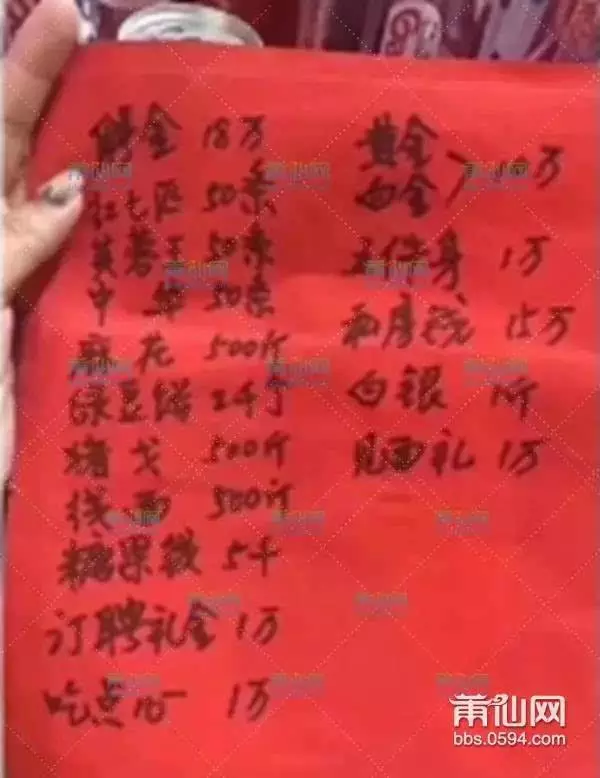 聘金 18万
红七匹 50条
芙蓉王 50条
中华 50条
麻花 500斤
绿豆饼 2千个
猪 500斤
线面 500斤
糖果袋 5千
订聘礼金 1万
吃点心 1万
黄金
白金 万
身 1万
私房钱 15万
白银 1斤
见面礼 1万
莆仙网
bbs.0594.com